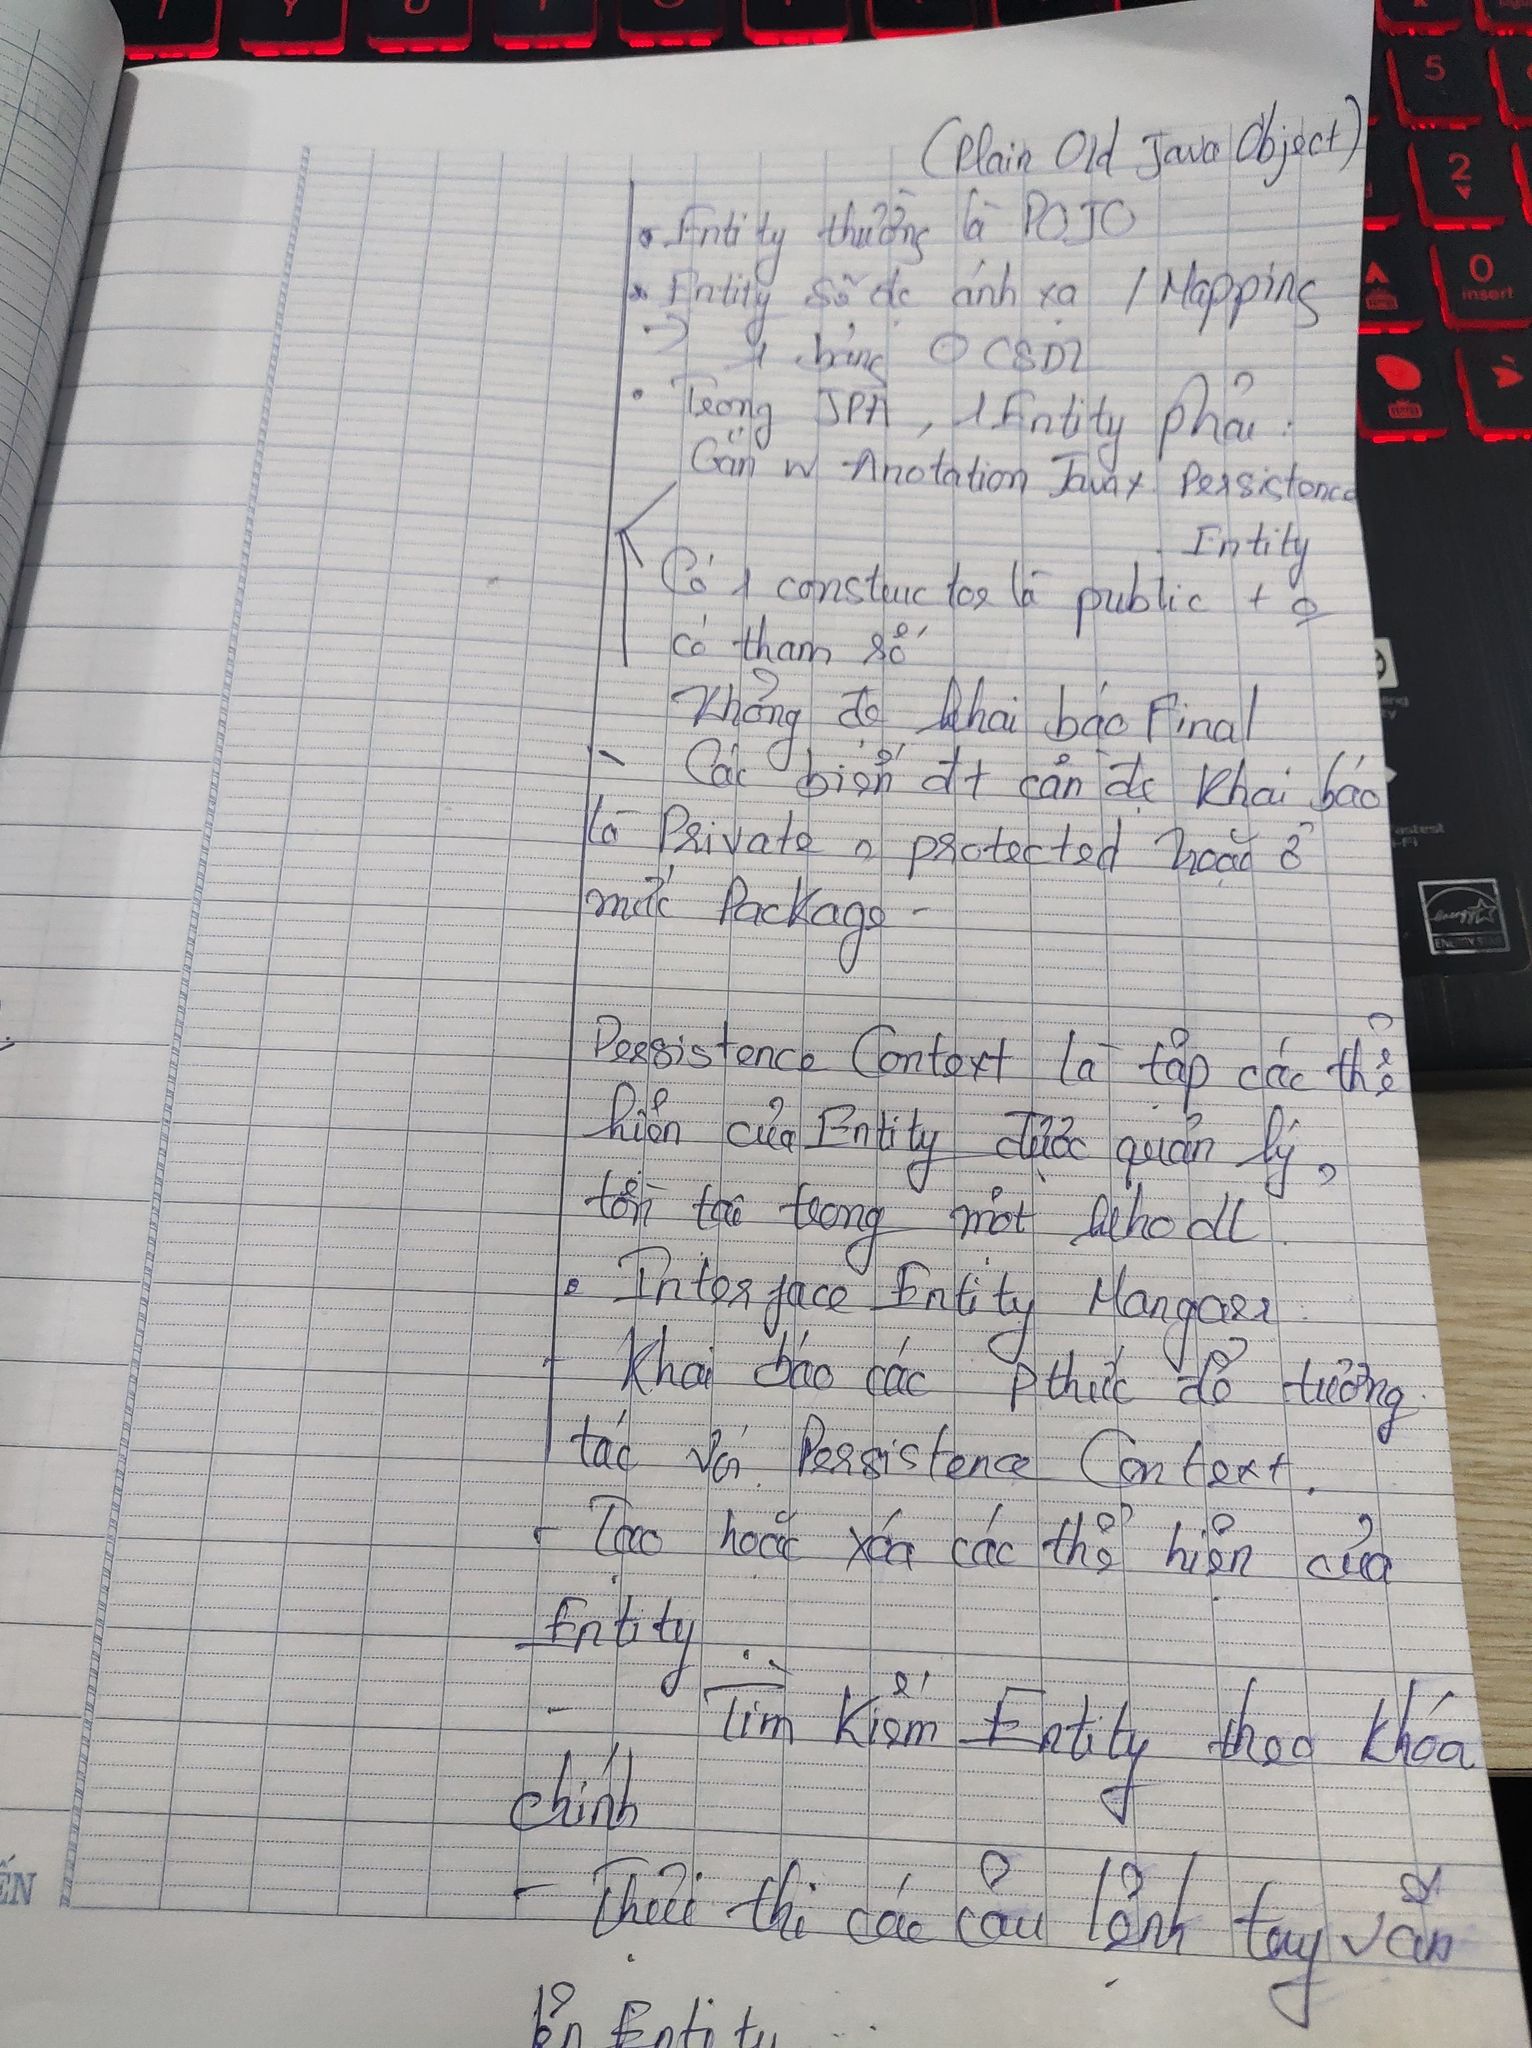 (Plain Old Java Object)
• Entity thường là POJO
• Entity sẽ đc ánh xạ / Mapping
→ 1 bảng CSDL
• Trong JPA, 1 Entity phải:
Gắn w Anotation Javax Persistence
Entity
Có 1 constructor là public + o
có tham số
Không đc khai báo Final
- Các biến đt cần đc khai báo
là Private, protected hoặc ở
mức Package.
Persistence Context là tập các thể
hiện của Entity được quản lý,
tồn tại trong một kho dl.
• Interface Entity Mangaer.
- Khai báo các pthức để tương
tác với Persistence Context.
- Tạo hoặc xóa các thể hiện của
Entity
- Tìm kiếm Entity theo khóa
chính
- Thực thi các câu lệnh tay vấn
lên Entity
ẾN
5
2
0
insert
energy
ENERGY STAR